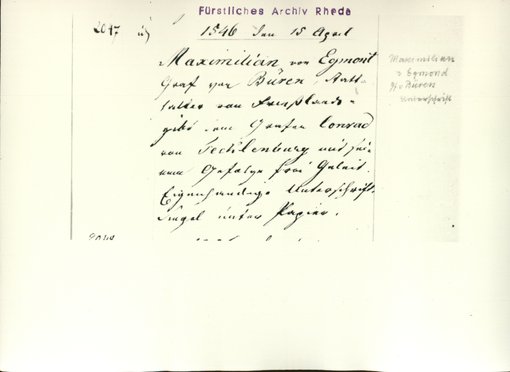 Fürstliches Archiv Rheda
2047 1546 den 15 April
Maximilian von Egmont
Graf von Büren, Statt-
halter von Frießland,
giebt dem Grafen Conrad
von Tecklenburg und sei-
nem Gefolge frei Geleit.
Eigenhändige Unterschrift.
Siegel unter Papier.
Maximilian
v Egmond
Büren
Unterschrift